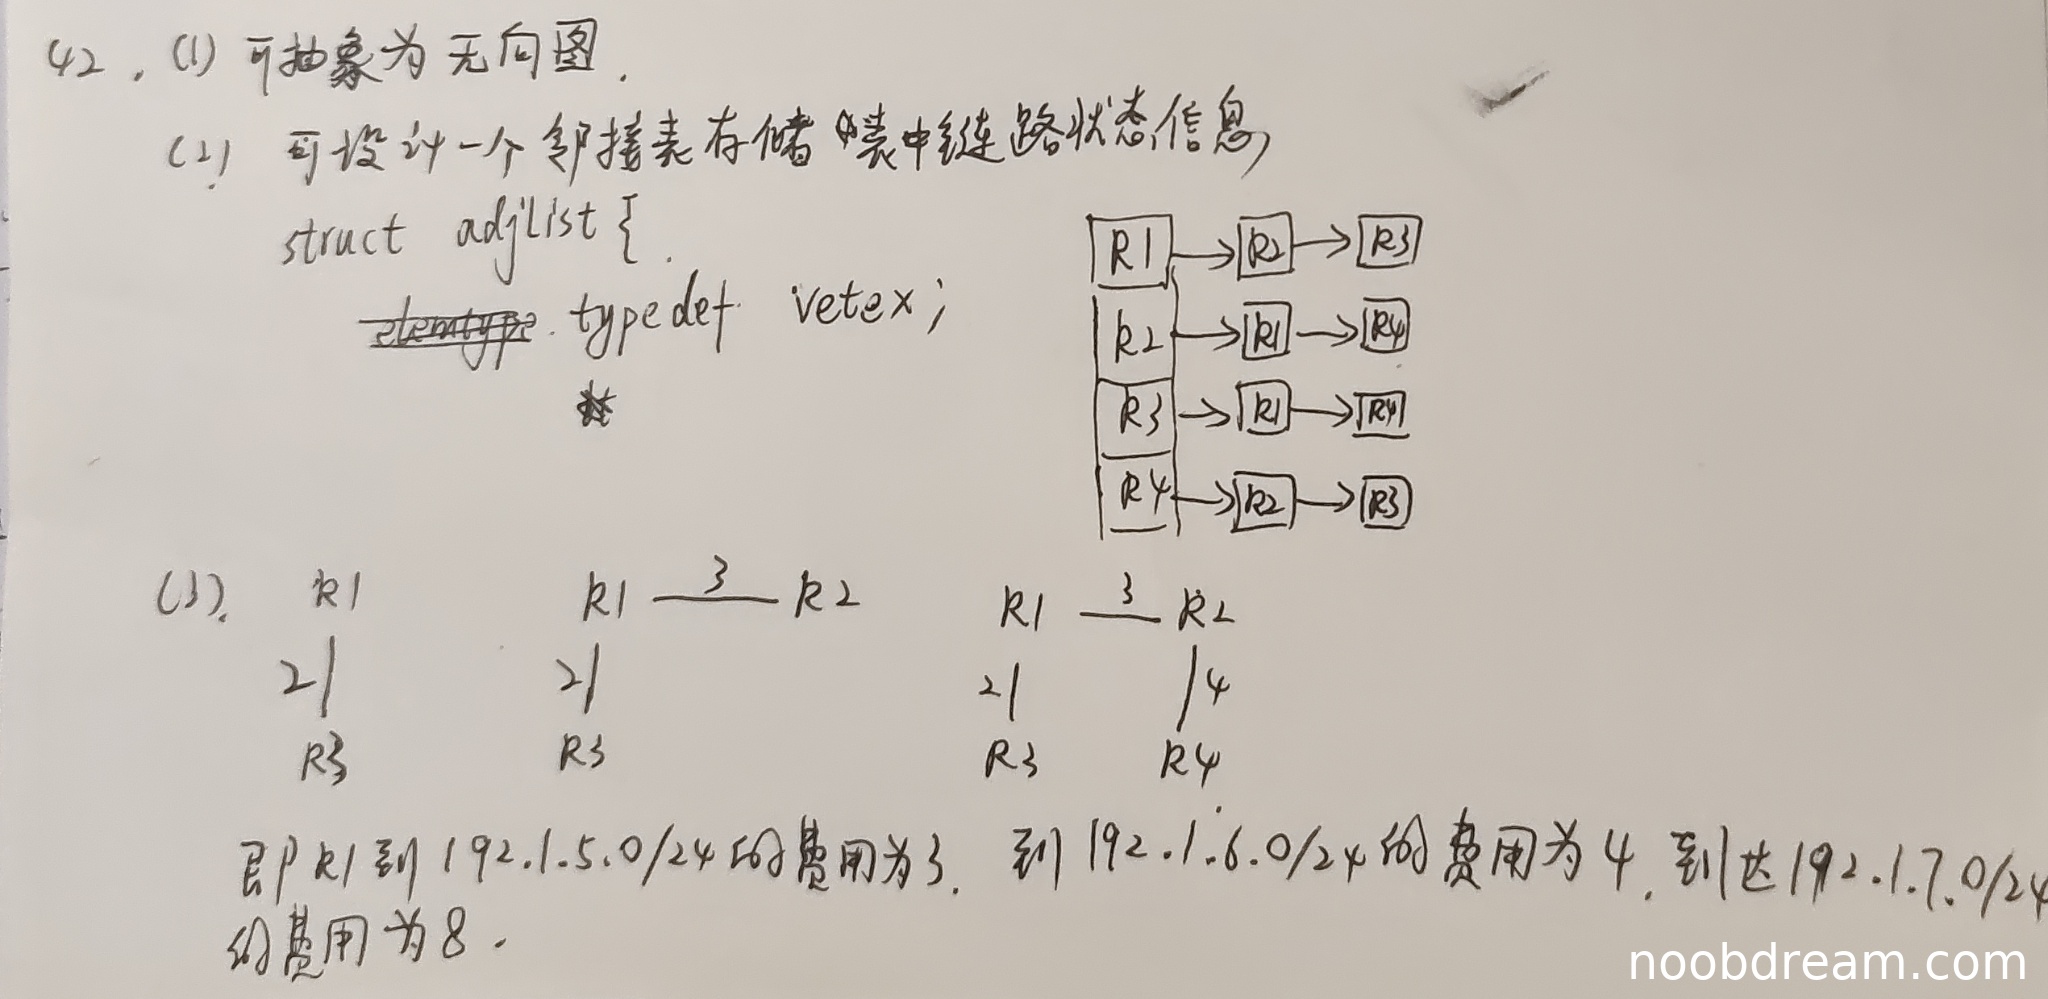 42. (1) 可抽象为无向图.
(2) 可设计一个邻接表存储表中链路状态信息,
struct adjlist {
typedef vetex;
R1 → R2 → R3
R2 → R1 → R4
R3 → R1 → R4
R4 → R2 → R3
(3). R1 R1 3 R2 R1 3 R2
2 2 2 4
R3 R3 R3 R4
即R1到192.1.5.0/24的费用为3. 到192.1.6.0/24的费用为4. 到达192.1.7.0/24
的费用为8.
noobdream.com